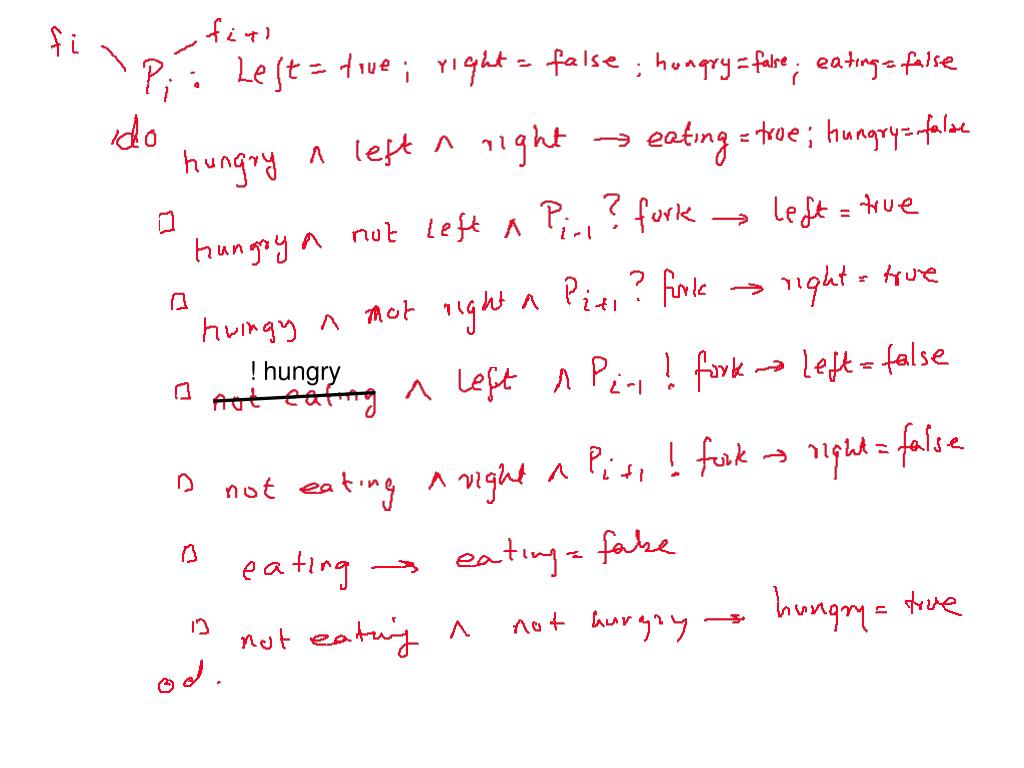 fi fi+1
Pi : Left = true ; right = false ; hungry = false ; eating = false
do
hungry ∧ left ∧ right → eating = true ; hungry = false
□ hungry ∧ not left ∧ Pi-1 ? fork → left = true
□ hungry ∧ not right ∧ Pi+1 ? fork → right = true
! hungry
□ not eating ∧ left ∧ Pi-1 ! fork → left = false
□ not eating ∧ right ∧ Pi+1 ! fork → right = false
□ eating → eating = false
□ not eating ∧ not hungry → hungry = true
od.